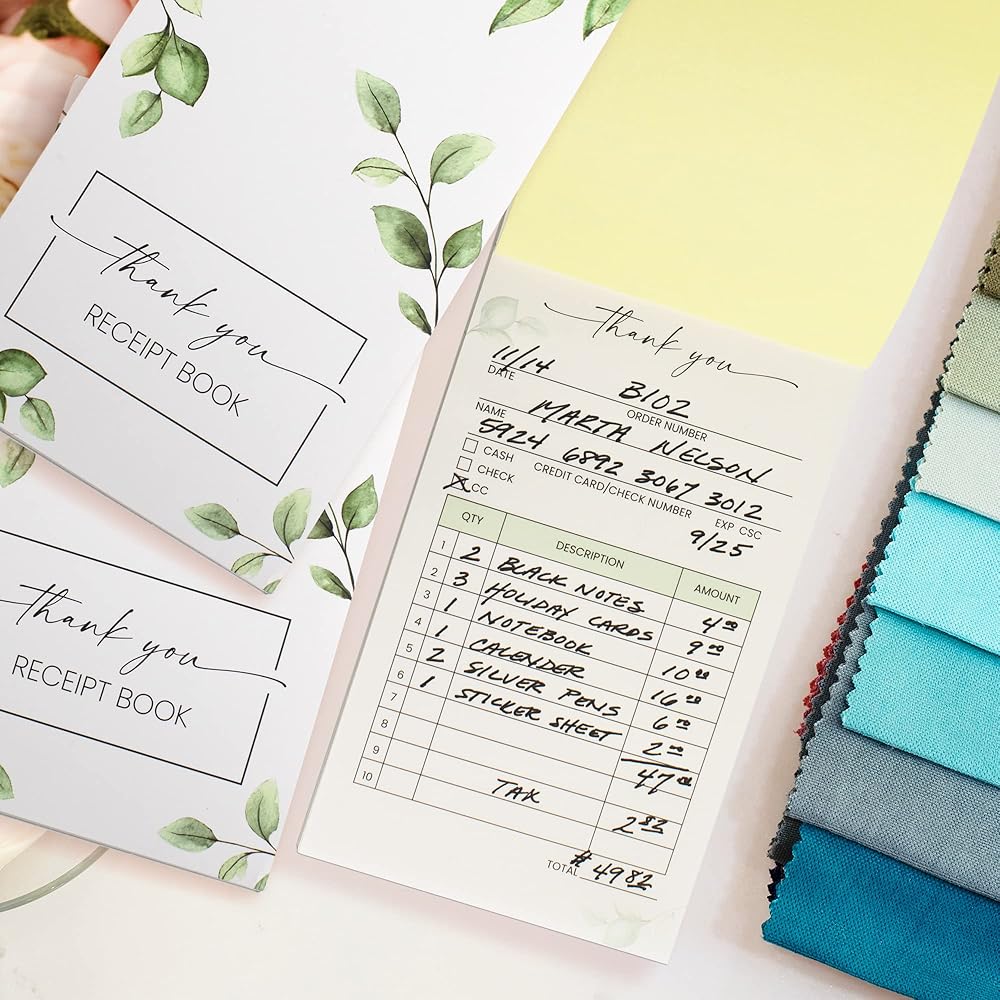 thank you
RECEIPT BOOK
thank you
RECEIPT BOOK
thank you
11/14 B102
DATE ORDER NUMBER
MARTA NELSON
NAME
5924 6892 3067 3012
CASH CREDIT CARD/CHECK NUMBER EXP CSC
CHECK
CC 9/25
QTY DESCRIPTION AMOUNT
1 2 BLACK NOTES 4 00
2 3 HOLIDAY CARDS 9 00
3 1 NOTEBOOK 10 00
4 1 CALENDER 16 00
5 2 SILVER PENS 6 00
6 1 STICKER SHEET 2 00
7 47 00
8
9 TAX 2 82
10
TOTAL # 49 82